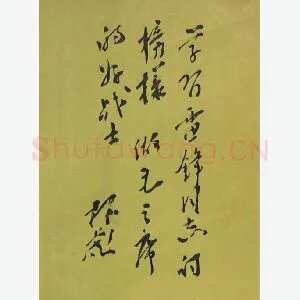 学习雷锋同志的
榜样 做毛主席
的好战士
Shufawang.CN